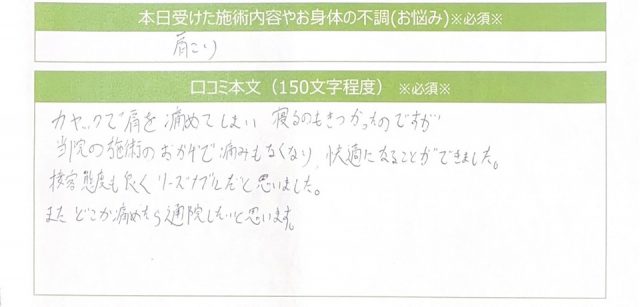 本日受けた施術内容やお身体の不調(お悩み)※必須※
肩こり
口コミ本文（150文字程度） ※必須※
カヤックで肩を痛めてしまい 寝るのもきつかったのですが
当院の施術のおかげで痛みもなくなり、快適になることができました。
接客態度も良く リーズナブルだと思いました。
また どこか痛めたら通院したいと思います。